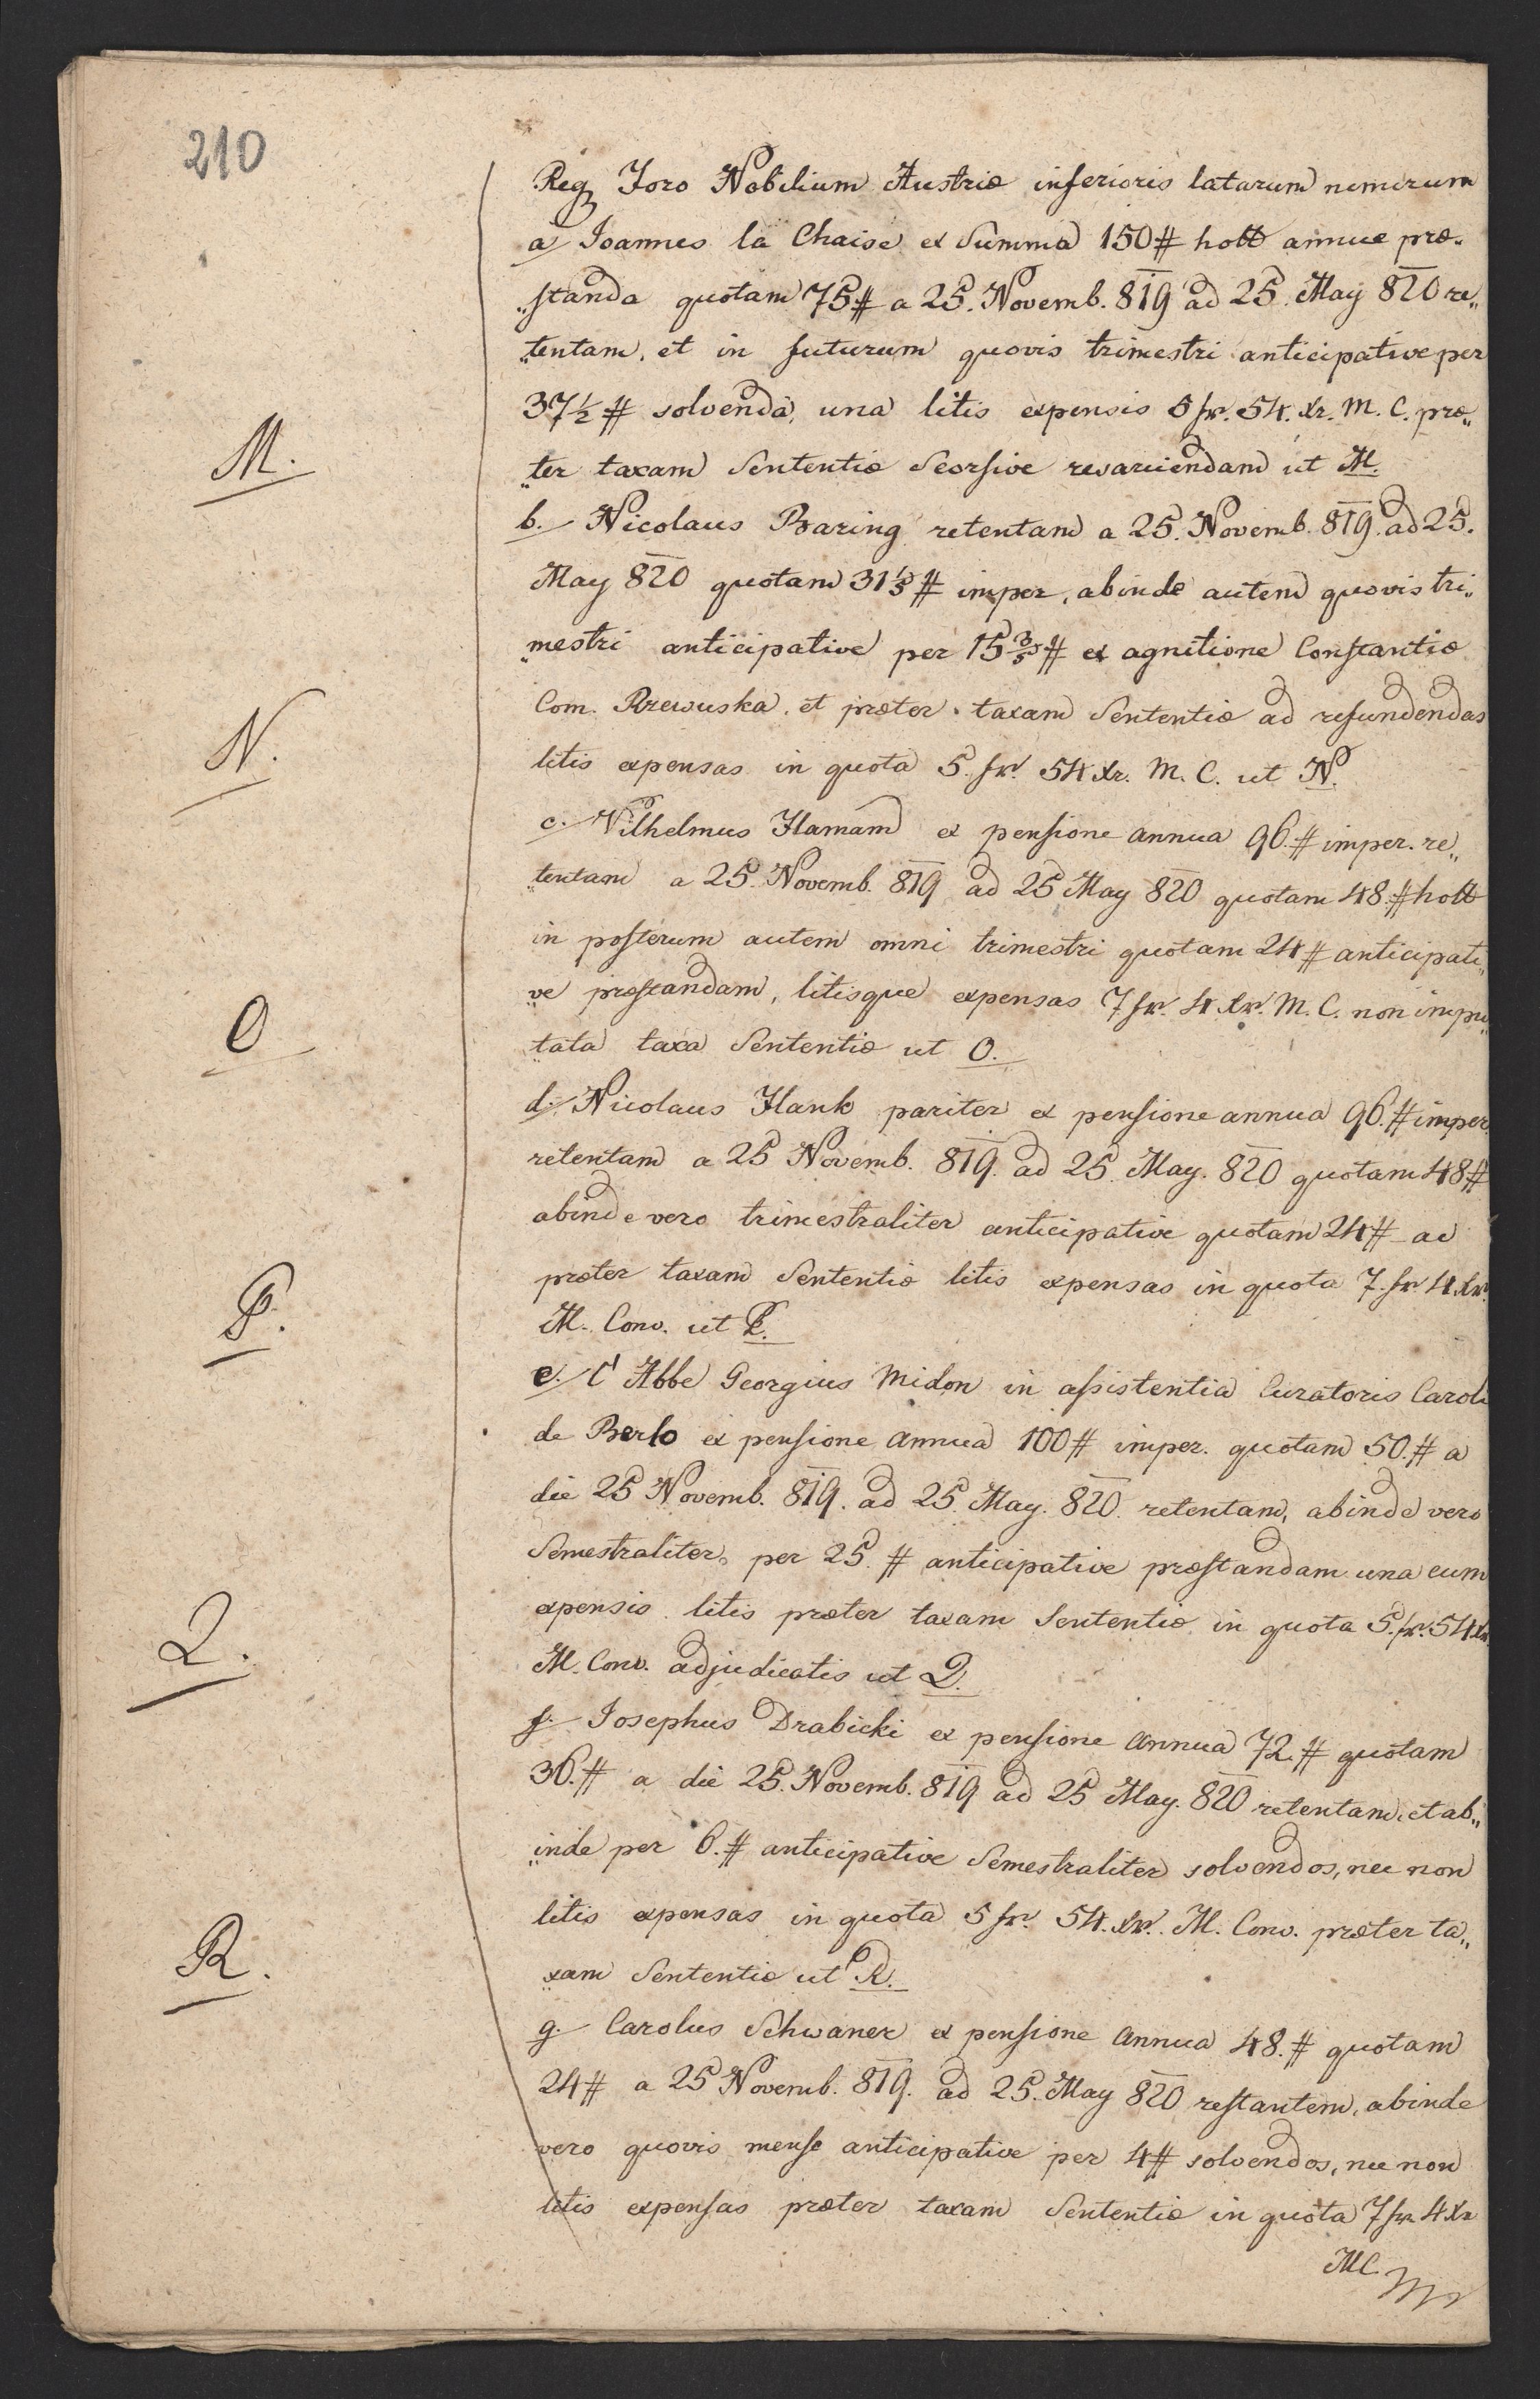 210
Reg Foro Nobilium Austriæ inferioris latarum nimirum
a Joannes la Chaise ex Summa 150# holl annue præ„
„standa quotam 75# a 25. Novemb. 819 ad 25. May 820 re„
„tentam, et in futurum quovis trimestri anticipative per
37½ # solvenda, una litis expensis 5 fr. 54. Xr. M. C. præ„
M.
„ter taxam Sententiæ Seorsive resarciendam ut M.
b. Nicolaus Baring retentam a 25. Novemb. 819. ad 25.
May 820 quotam 31 1/5 # imper, abinde autem quovis tri„
„mestri anticipative per 15 3/5 # ex agnitione Constantiæ
N.
Com. Rzewuska. et præter taxam Sententiæ ad refundendas
litis expensas in quota 5. fr. 54 Xr. M. C. ut N.
c. Vilhelmus Hamam ex pensione annua 96.# imper. re„
„tentam a 25. Novemb. 819 ad 25 May 820 quotam 48.# holl
in posterum autem omni trimestri quotam 24# anticipati„
O
„ve præstandam, litisque expensas 7 fr. 4 Xr. M. C. non impu„
„tata taxa Sententiæ ut O.
d. Nicolaus Hank pariter ex pensione annua 96.# imper.
retentam a 25 Novemb. 819. ad 25. May. 820 quotam 48#
abinde vero trimestraliter anticipative quotam 24# ac
P.
præter taxam Sententiæ litis expensas in quota 7. fr 4 Xr.
M. Conv. ut P.
e. l' Abbe Georgius Midon in assistentia Curatoris Caroli
de Berlo ex pensione annua 100# imper. quotam 50.# a
die 25 Novemb. 819. ad 25. May. 820. retentam, abinde vero
Semestraliter. per 25. # anticipative præstandam una cum
Q.
expensis litis præter taxam Sententiæ in quota 5. fr. 54 Xr.
M. Conv. adjudicatis ut Q.
f. Josephus Drabicki ex pensione annua 72.# quotam
36.# a die 25. Novemb. 819 ad 25 May. 820 retentam, et ab„
„inde per 6.# anticipative Semestraliter solvendos, nec non
R.
litis expensas in quota 5 fr. 54. Xr. M. Conv. præter ta„
xam Sententiæ ut R.
g. Carolus Schwaner ex pensione annua 48.# quotam
24# a 25 Novemb. 819. ad 25. May 820 restantem, abinde
vero quovis mense anticipative per 4# solvendos, nec non
litis expensas præter taxam Sententiæ in quota 7 fr 4 Xr
MC.